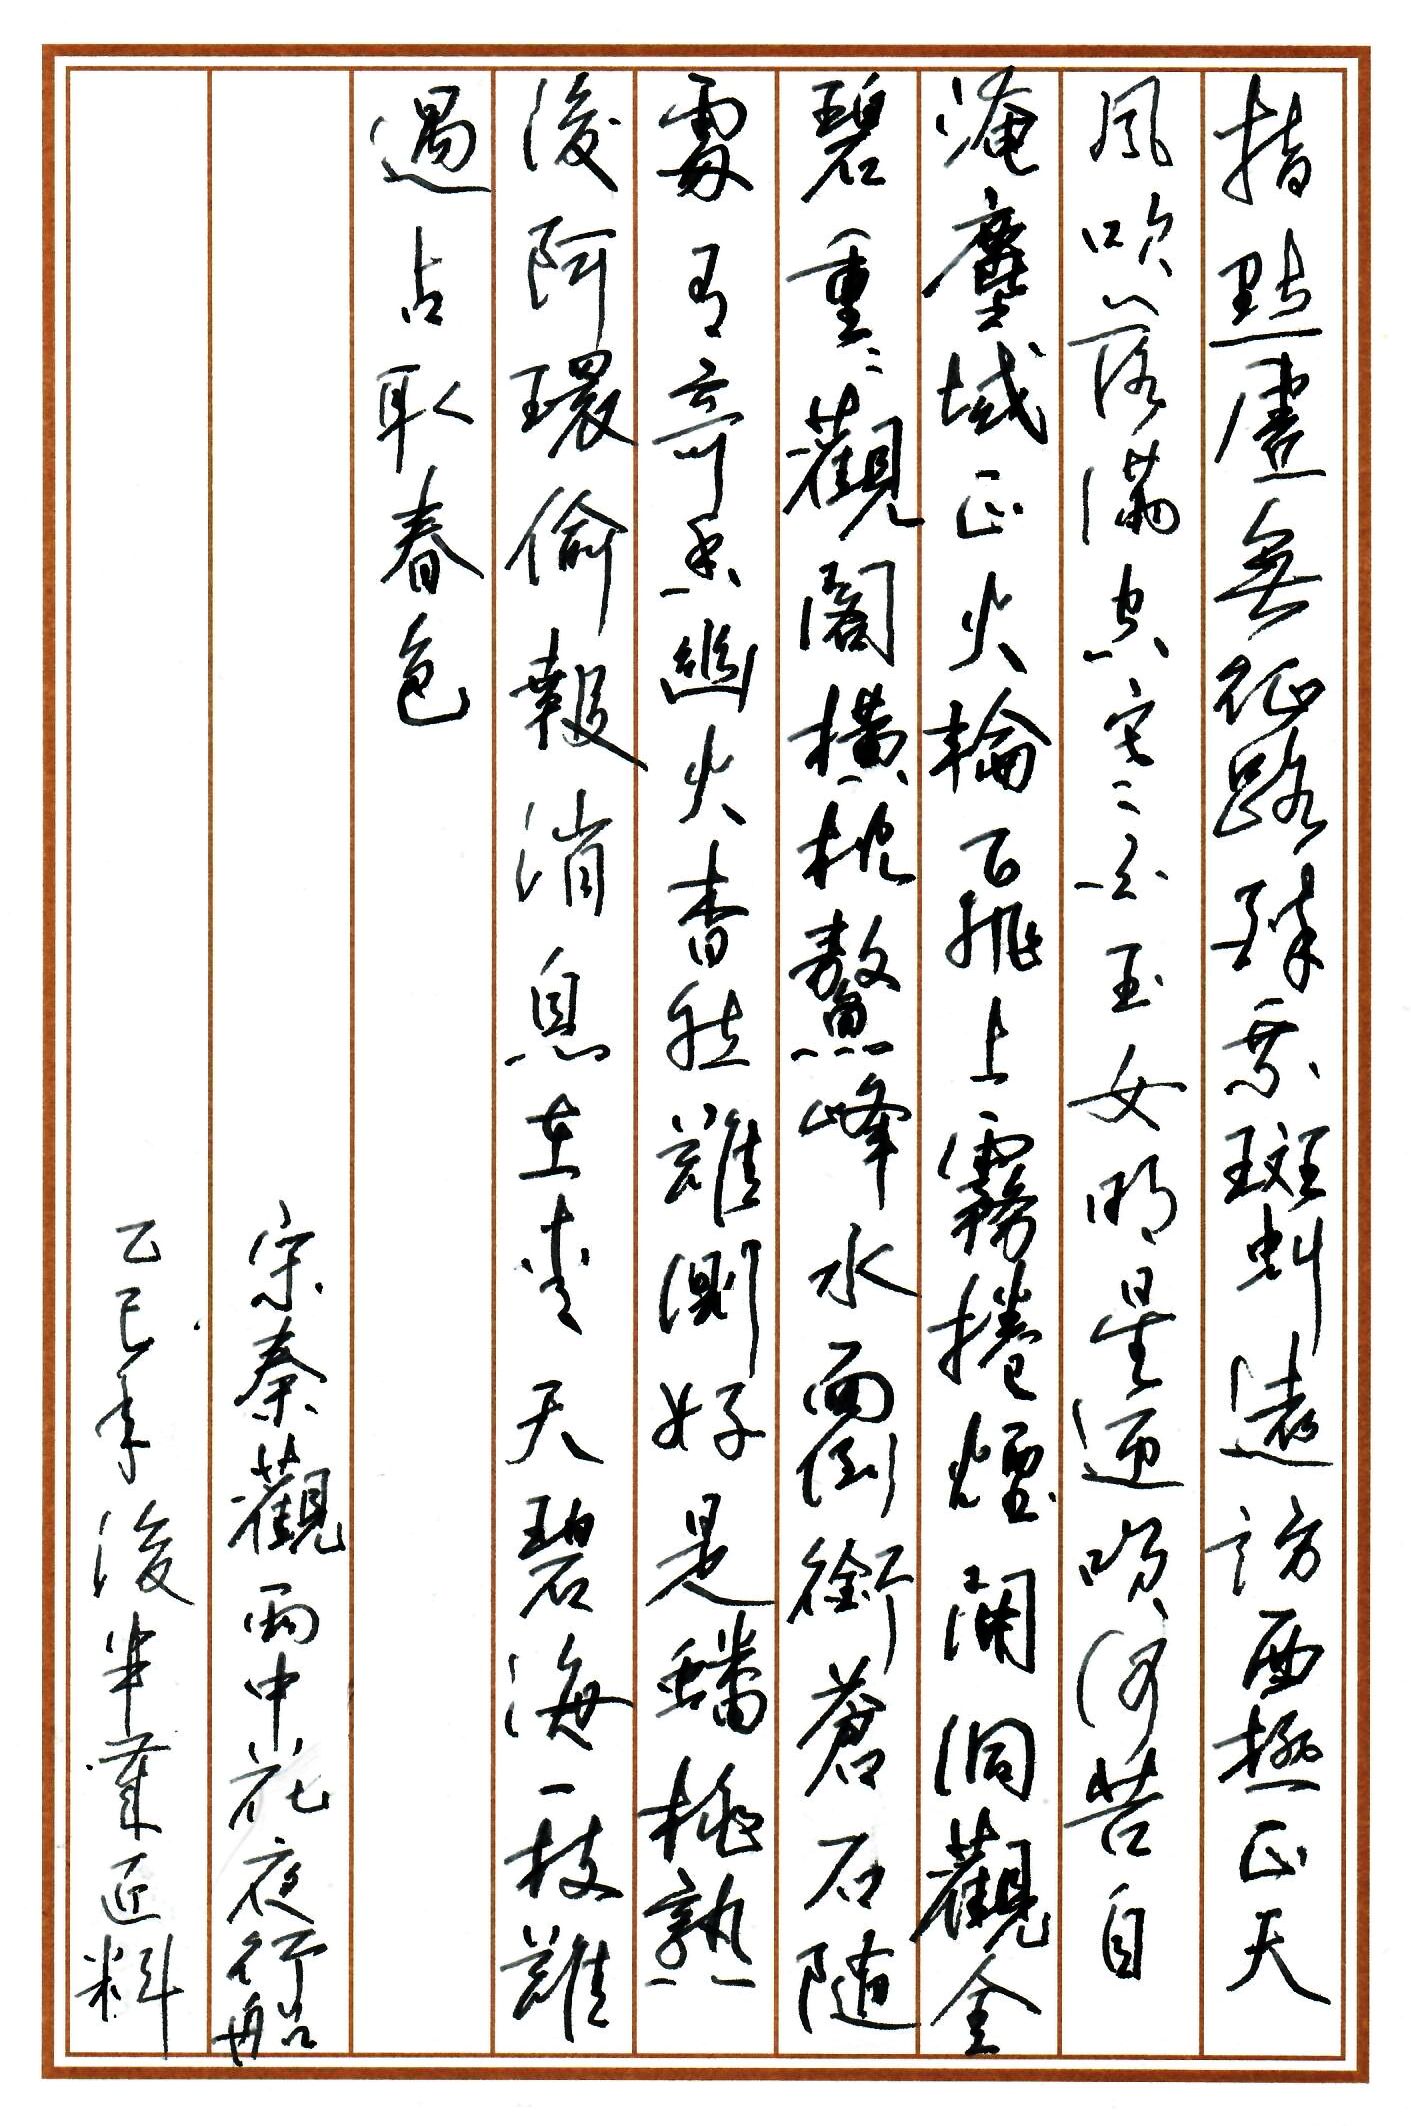 指點虛無征路醉乘斑虬遠訪西極正天
風吹落滿空寒白玉女明星迎笑何苦自
淹塵域正火輪飛上霧捲煙開洞觀金
碧重〻觀閣橫枕鰲峰水面倒銜蒼石隨
處有奇香幽火杳然難測好是蟠桃熟
後阿環偷報消息在青天碧海一枝難
遇占取春色
宋秦觀雨中花夜行船
乙巳年後半葉匠料